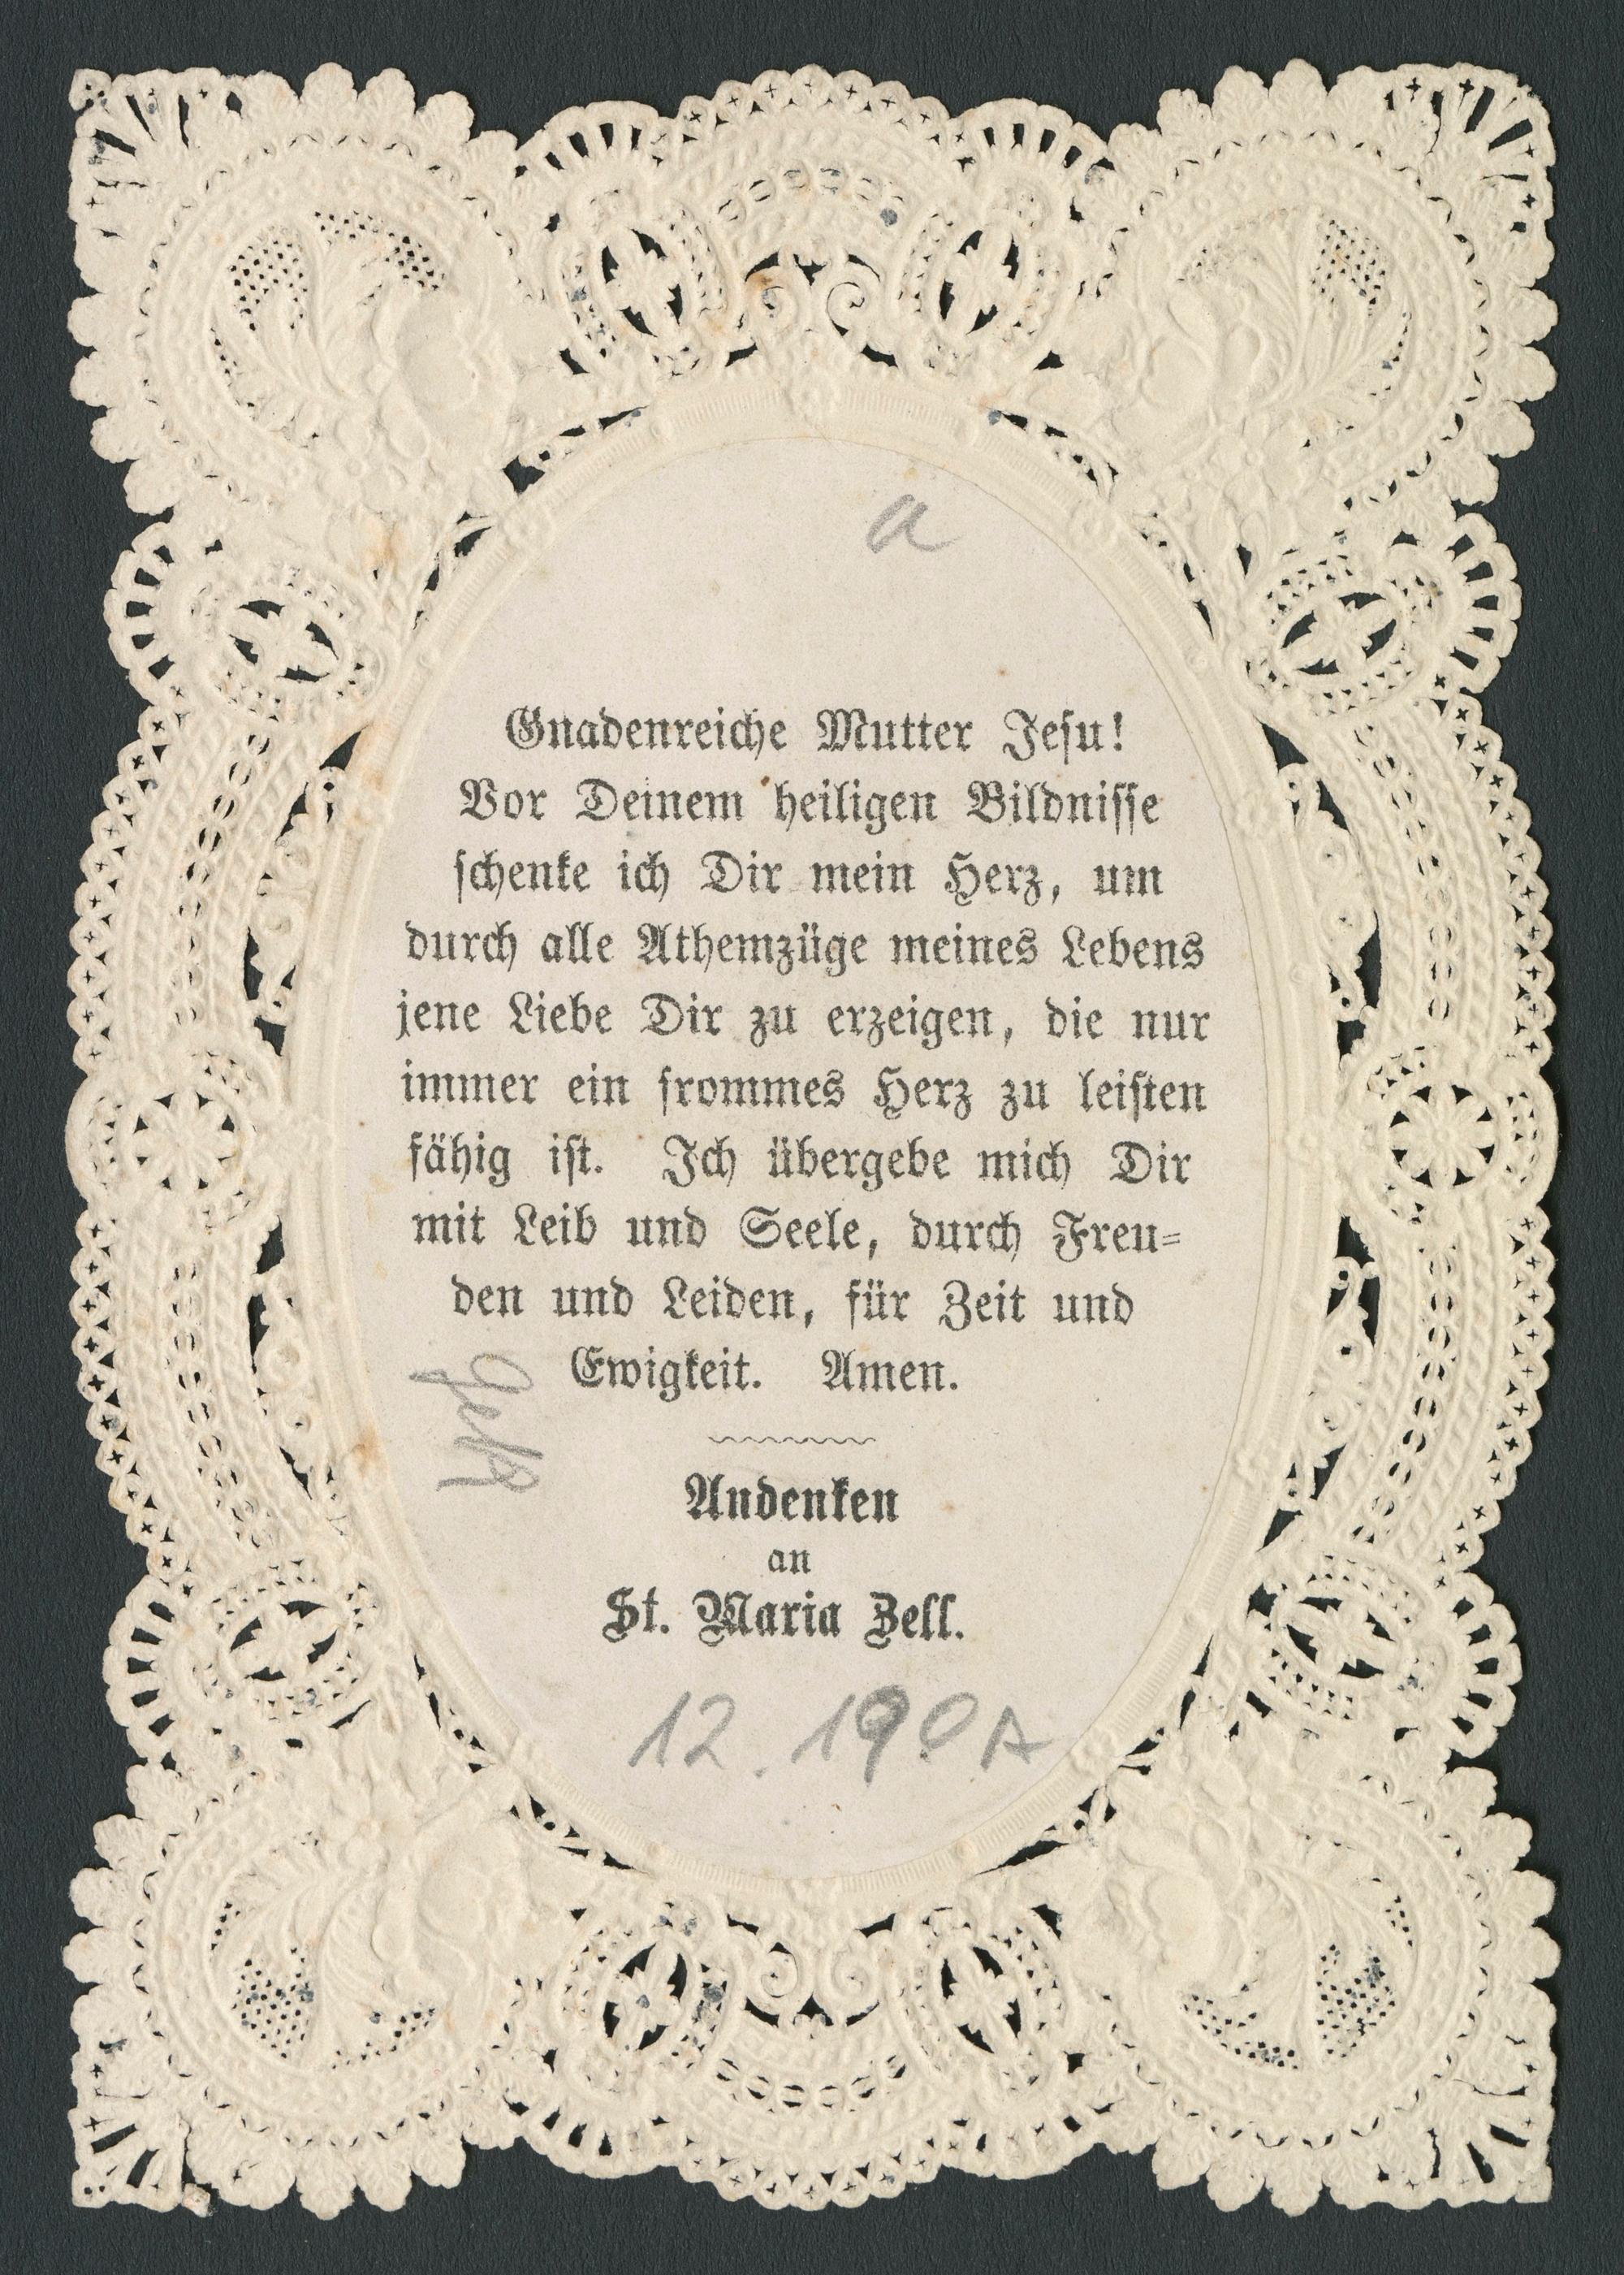 a
Gnadenreiche Mutter Jesu!
Vor Deinem heiligen Bildnisse
schenke ich Dir mein Herz, um
durch alle Athemzüge meines Lebens
jene Liebe Dir zu erzeigen, die nur
immer ein frommes Herz zu leisten
fähig ist. Ich übergebe mich Dir
mit Leib und Seele, durch Freu-
den und Leiden, für Zeit und
Ewigkeit. Amen.
Andenken
an
St. Maria Zell.
12.190A